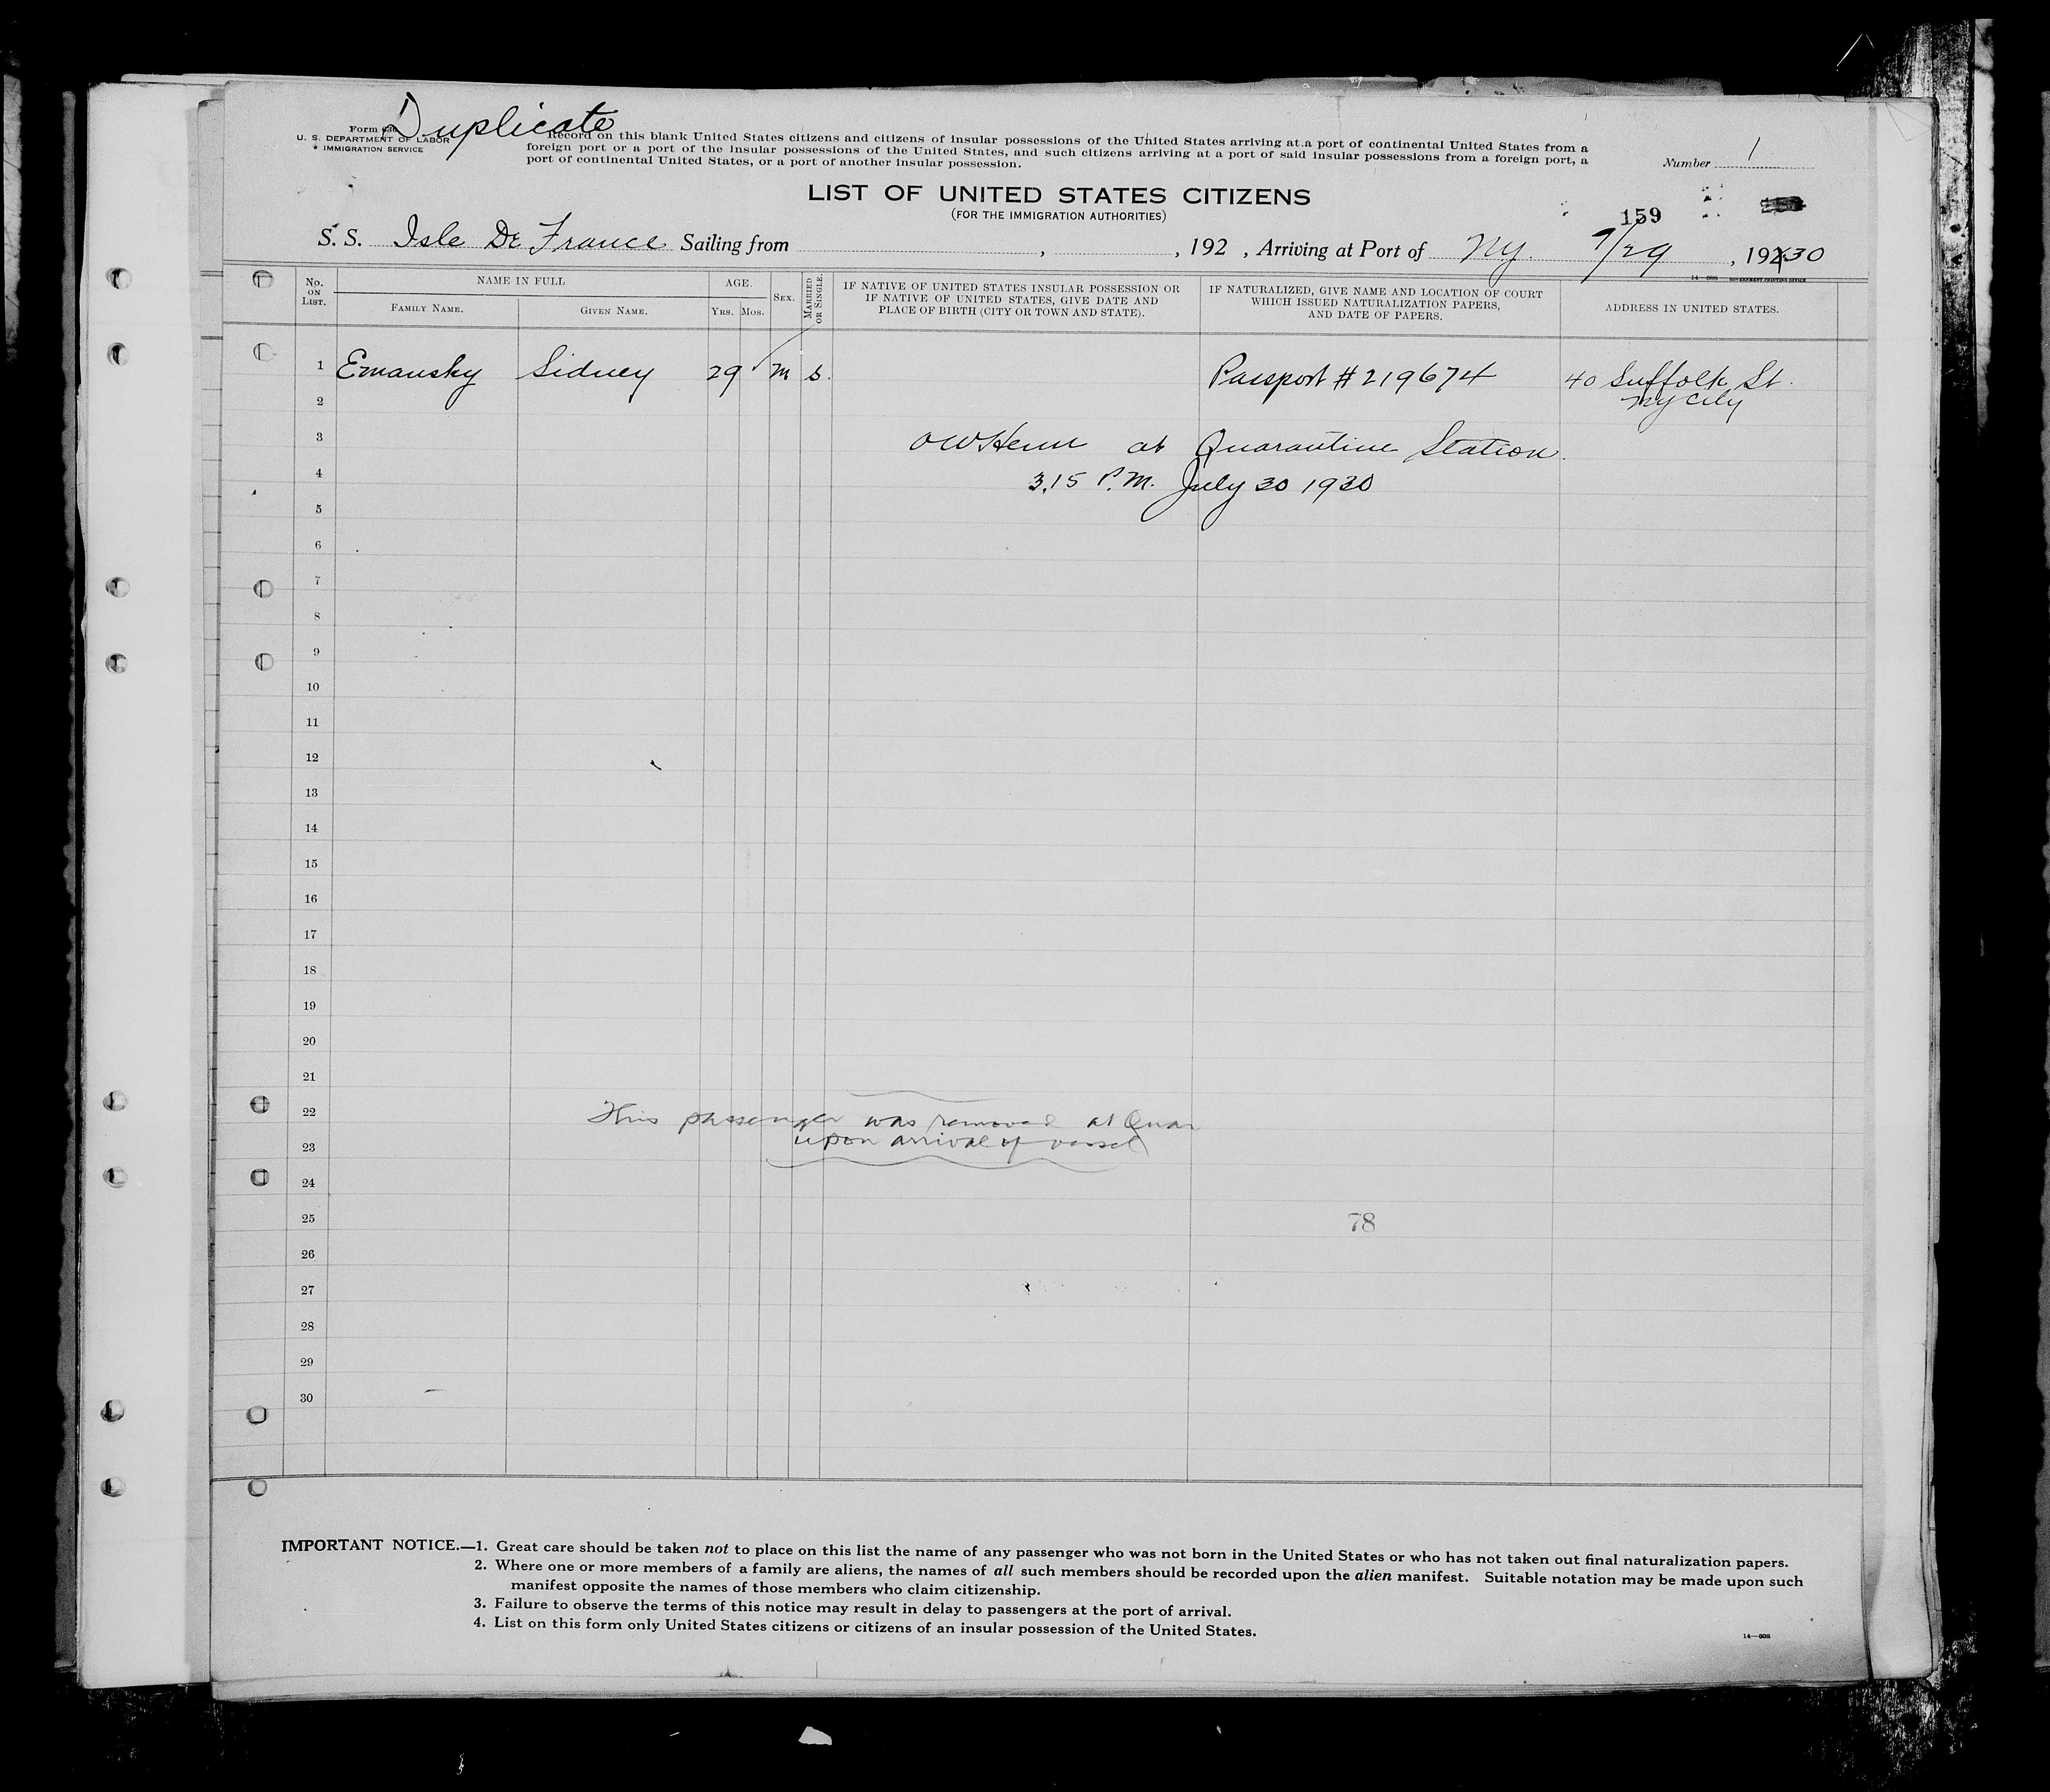 Duplicate
Form 630
U. S. DEPARTMENT OF LABOR
IMMIGRATION SERVICE
Record on this blank United States citizens and citizens of insular possessions of the United States arriving at a port of continental United States from a
foreign port or a port of the insular possessions of the United States, and such citizens arriving at a port of said insular possessions from a foreign port, a
port of continental United States, or a port of another insular possession.
Number 1
LIST OF UNITED STATES CITIZENS
(FOR THE IMMIGRATION AUTHORITIES)
159
S. S. Isle De France Sailing from , , 192 , Arriving at Port of NY. 7/29 , 19230
14—608 GOVERNMENT PRINTING OFFICE
No. ON LIST.
NAME IN FULL
FAMILY NAME.
GIVEN NAME.
AGE.
YRS. MOS.
SEX.
MARRIED OR SINGLE.
IF NATIVE OF UNITED STATES INSULAR POSSESSION OR
IF NATIVE OF UNITED STATES, GIVE DATE AND
PLACE OF BIRTH (CITY OR TOWN AND STATE).
IF NATURALIZED, GIVE NAME AND LOCATION OF COURT
WHICH ISSUED NATURALIZATION PAPERS,
AND DATE OF PAPERS.
ADDRESS IN UNITED STATES.
1 Emansky Sidney 29 M S. Passport #219674 40 Suffolk St.
2 NY City
3 at Quarantine Station.
4 3.15 P.M. July 30 1930
5
6
7
8
9
10
11
12
13
14
15
16
17
18
19
20
21
22 This passenger was removed at Quar
23 upon arrival of vessel
24
25 78
26
27
28
29
30
IMPORTANT NOTICE.—1. Great care should be taken not to place on this list the name of any passenger who was not born in the United States or who has not taken out final naturalization papers.
2. Where one or more members of a family are aliens, the names of all such members should be recorded upon the alien manifest. Suitable notation may be made upon such
manifest opposite the names of those members who claim citizenship.
3. Failure to observe the terms of this notice may result in delay to passengers at the port of arrival.
4. List on this form only United States citizens or citizens of an insular possession of the United States.
14—608